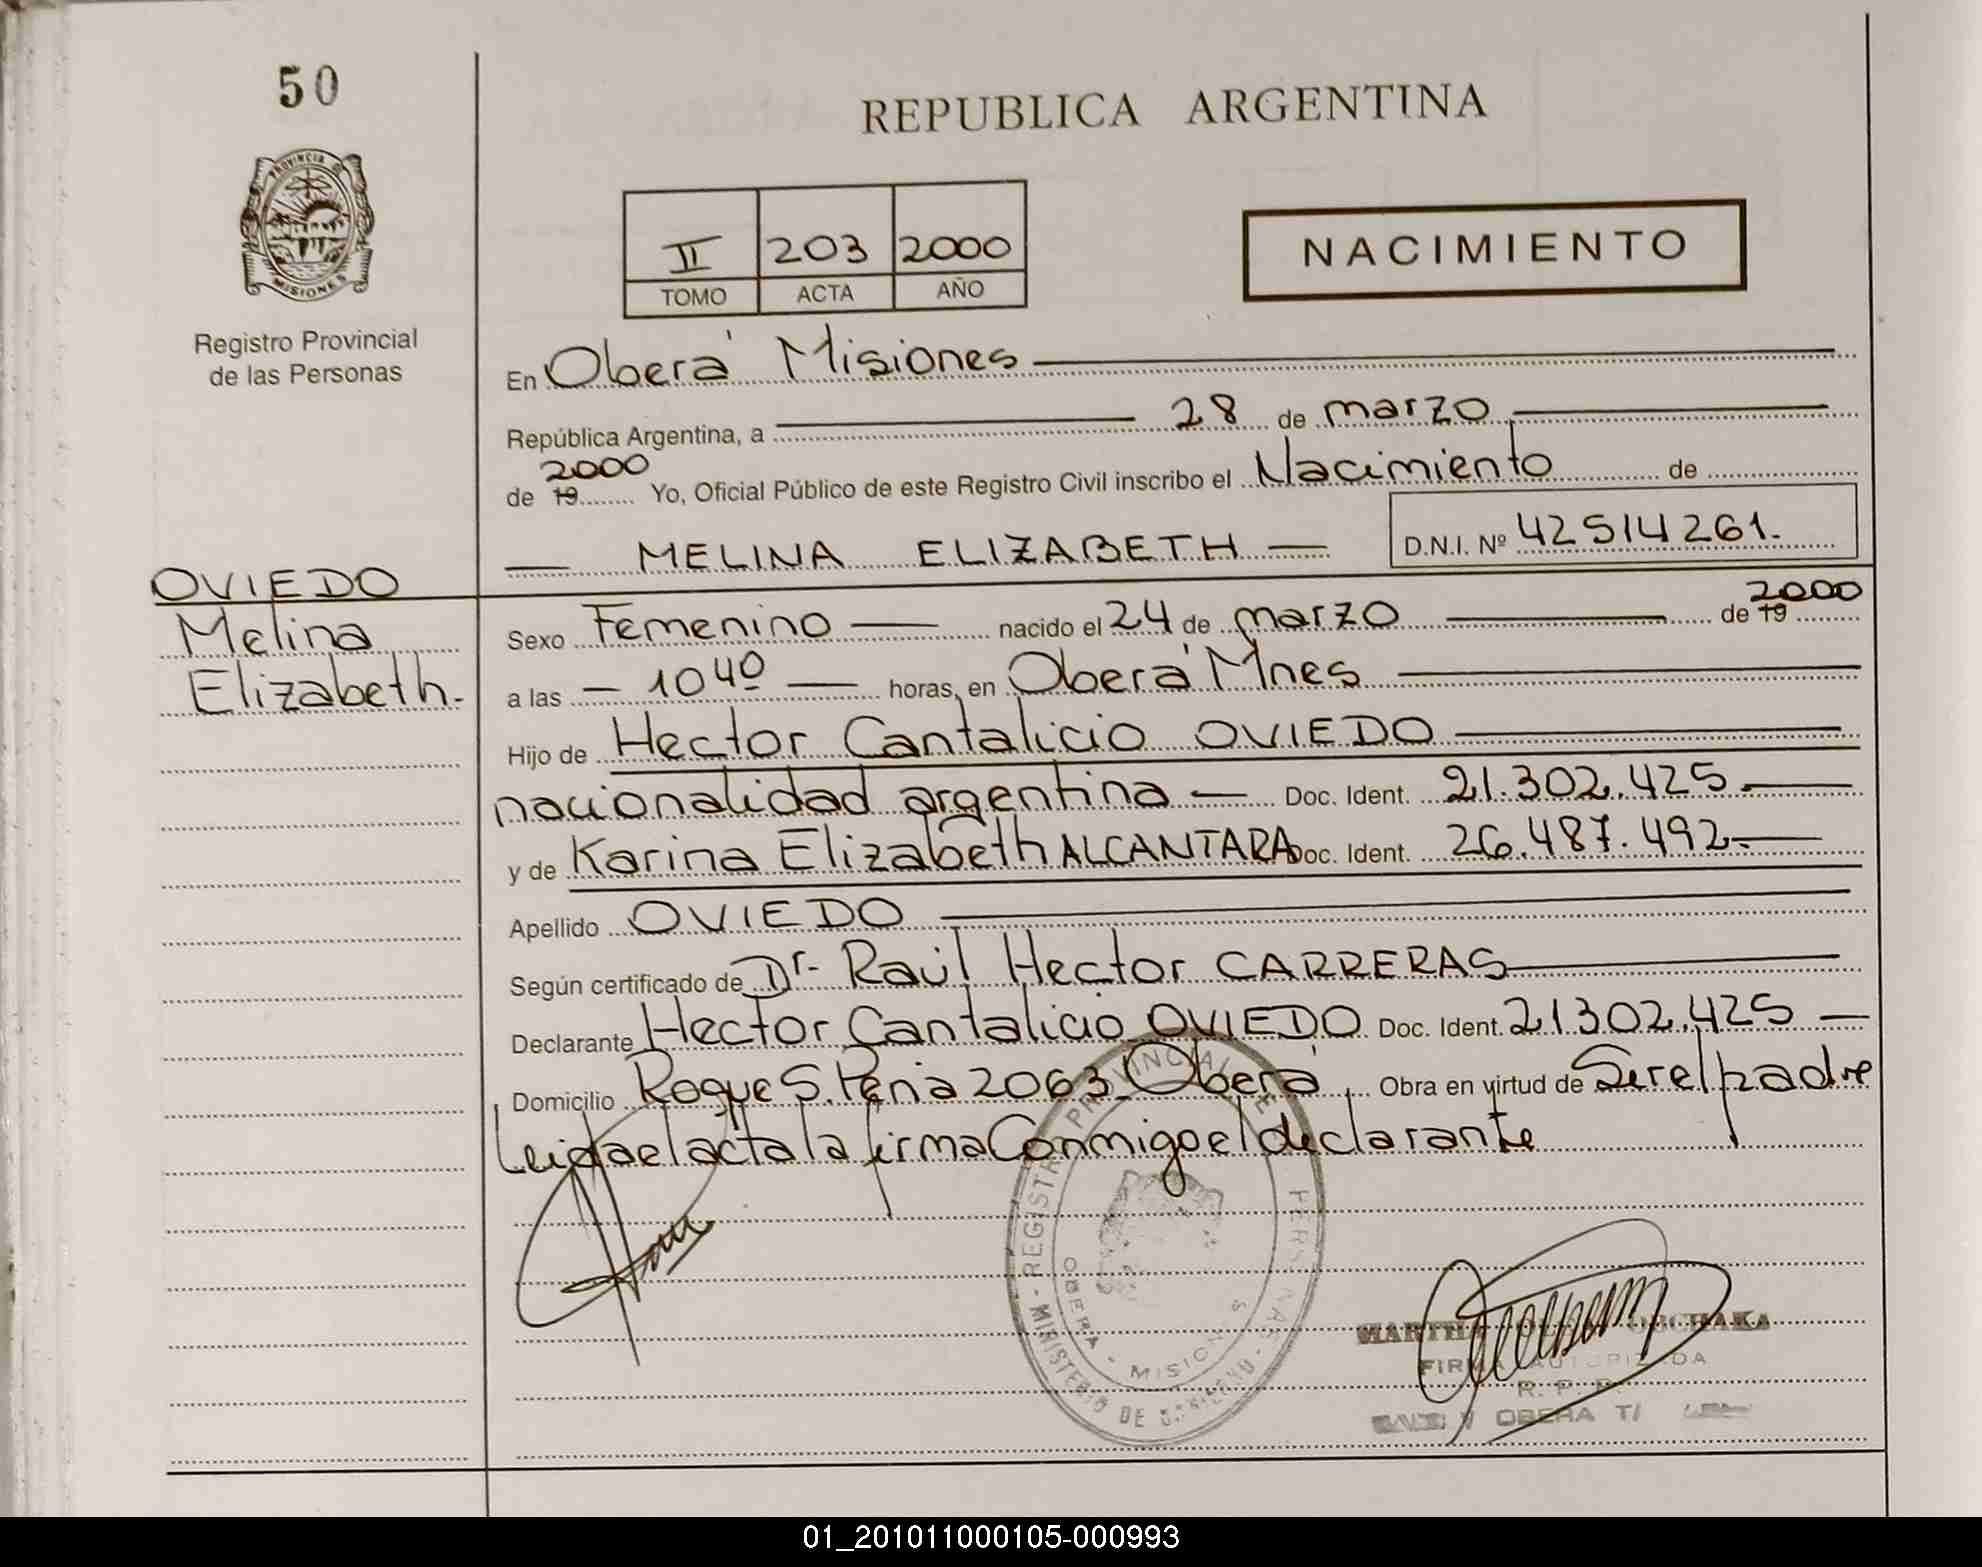 50
REPUBLICA ARGENTINA
PROVINCIA DE
MISIONES
II 203 2000
TOMO ACTA AÑO
NACIMIENTO
Registro Provincial
de las Personas
En Oberá Misiones
República Argentina, a 28 de marzo
2000
de 19 Yo, Oficial Público de este Registro Civil inscribo el Nacimiento de
MELINA ELIZABETH D.N.I. Nº 42514261.
OVIEDO
Melina
Elizabeth.
2000
Sexo Femenino nacido el 24 de marzo de 19
a las 10 40 horas, en Oberá Mnes
Hijo de Hector Cantalicio OVIEDO
nacionalidad argentina Doc. Ident. 21.302.425
y de Karina Elizabeth ALCANTARA Doc. Ident. 26.487.492
Apellido OVIEDO
Según certificado de Dr. Raúl Hector CARRERAS
Declarante Hector Cantalicio OVIEDO Doc. Ident. 21302.425
Domicilio Roque S. Peña 2063 Oberá Obra en virtud de Ser el padre
Leida el acta la firma Conmigo el declarante
REGISTRO PROVINCIAL DE PERSONAS
MINISTERIO DE GOBIERNO
OBERA - MISIONES
FIRMA AUTORIZADA
R. P. P.
OBERA
01_201011000105-000993